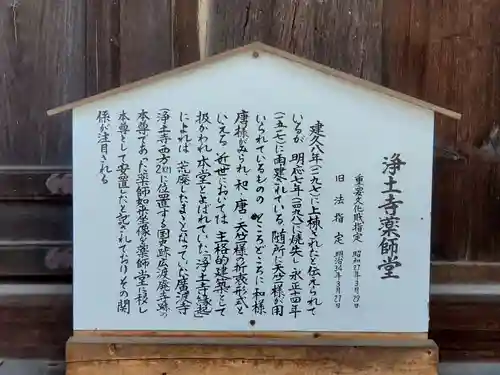 浄土寺薬師堂
重要文化財指定 昭和37年3月29日
旧法指定 明治34年3月27日
建久八年(一一九七)に上棟されたと伝えられて
いるが 明応七年(一四九八)に焼失し 永正十四年
(一五一七)に再建されている。随所に天竺様が用
いられているものの ところどころに和様
唐様がみられ 和・唐・天竺様の折衷形式と
いえる。近世においては 主格的建築として
扱かわれ 本堂とよばれていた。「浄土寺縁起」
によれば 荒廃したままとなっていた廣渡寺
(浄土寺西方2㎞に位置する国史跡広渡廃寺跡の
本尊であった薬師如来像を薬師堂に移し
本尊として安置したと記されており その関
係が注目される